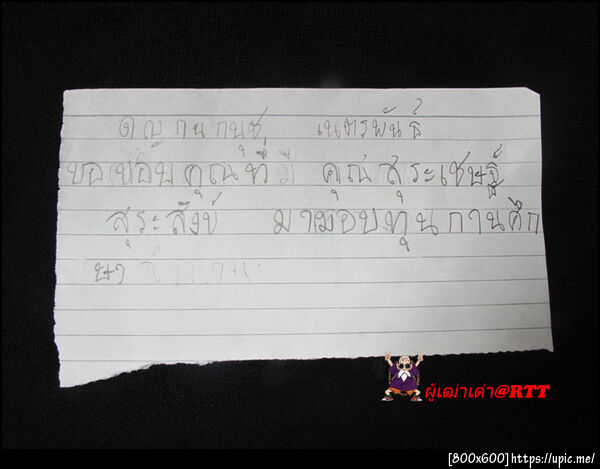 ด ญ กนกนุช เนตรพันธ์
ขอขอบคุณที่มี คุณ สุระเชษฐ์
สุระสังข์ มามอบทุนการศึก
ษา
ผู้เฒ่าเต่า@RTT
[800x600]https://upic.me/